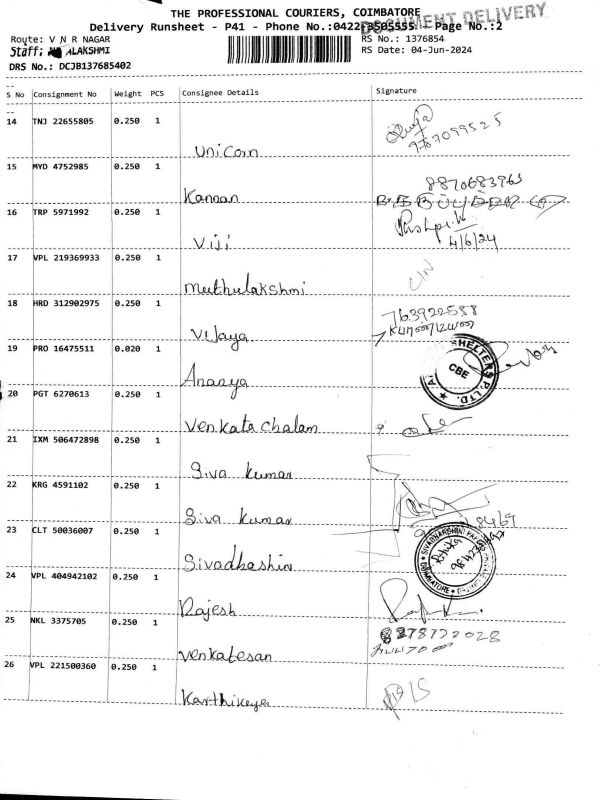 THE PROFESSIONAL COURIERS, COIMBATORE
DOCUMENT DELIVERY
Delivery Runsheet - P41 - Phone No.:0422 3505555 Page No.:2
Route: V N R NAGAR
RS No.: 1376854
Staff: ALAKSHMI
RS Date: 04-Jun-2024
DRS No.: DCJB137685402
S No Consignment No Weight PCS Consignee Details Signature
14 TNJ 22655805 0.250 1
Unicorn
15 MYD 4752985 0.250 1
8870683963
Kannan
16 TRP 5971992 0.250 1
Pushpa.K
Viji
4/6/24
17 VPL 219369933 0.250 1
Muthulakshmi
18 HRD 312902975 0.250 1
763922588
Vijaya
19 PRO 16475511 0.020 1
SHELTERS P. LTD.
CBE
Ananya
20 PGT 6270613 0.250 1
Venkata chalam
21 IXM 506472898 0.250 1
Siva kumar
22 KRG 4591102 0.250 1
Siva kumar
23 CLT 50036007 0.250 1
COIMBATORE
Sivadhashin
24 VPL 404942102 0.250 1
Rajesh
25 NKL 3375705 0.250 1
8278722028
Venkatesan
26 VPL 221500360 0.250 1
Karthikeya